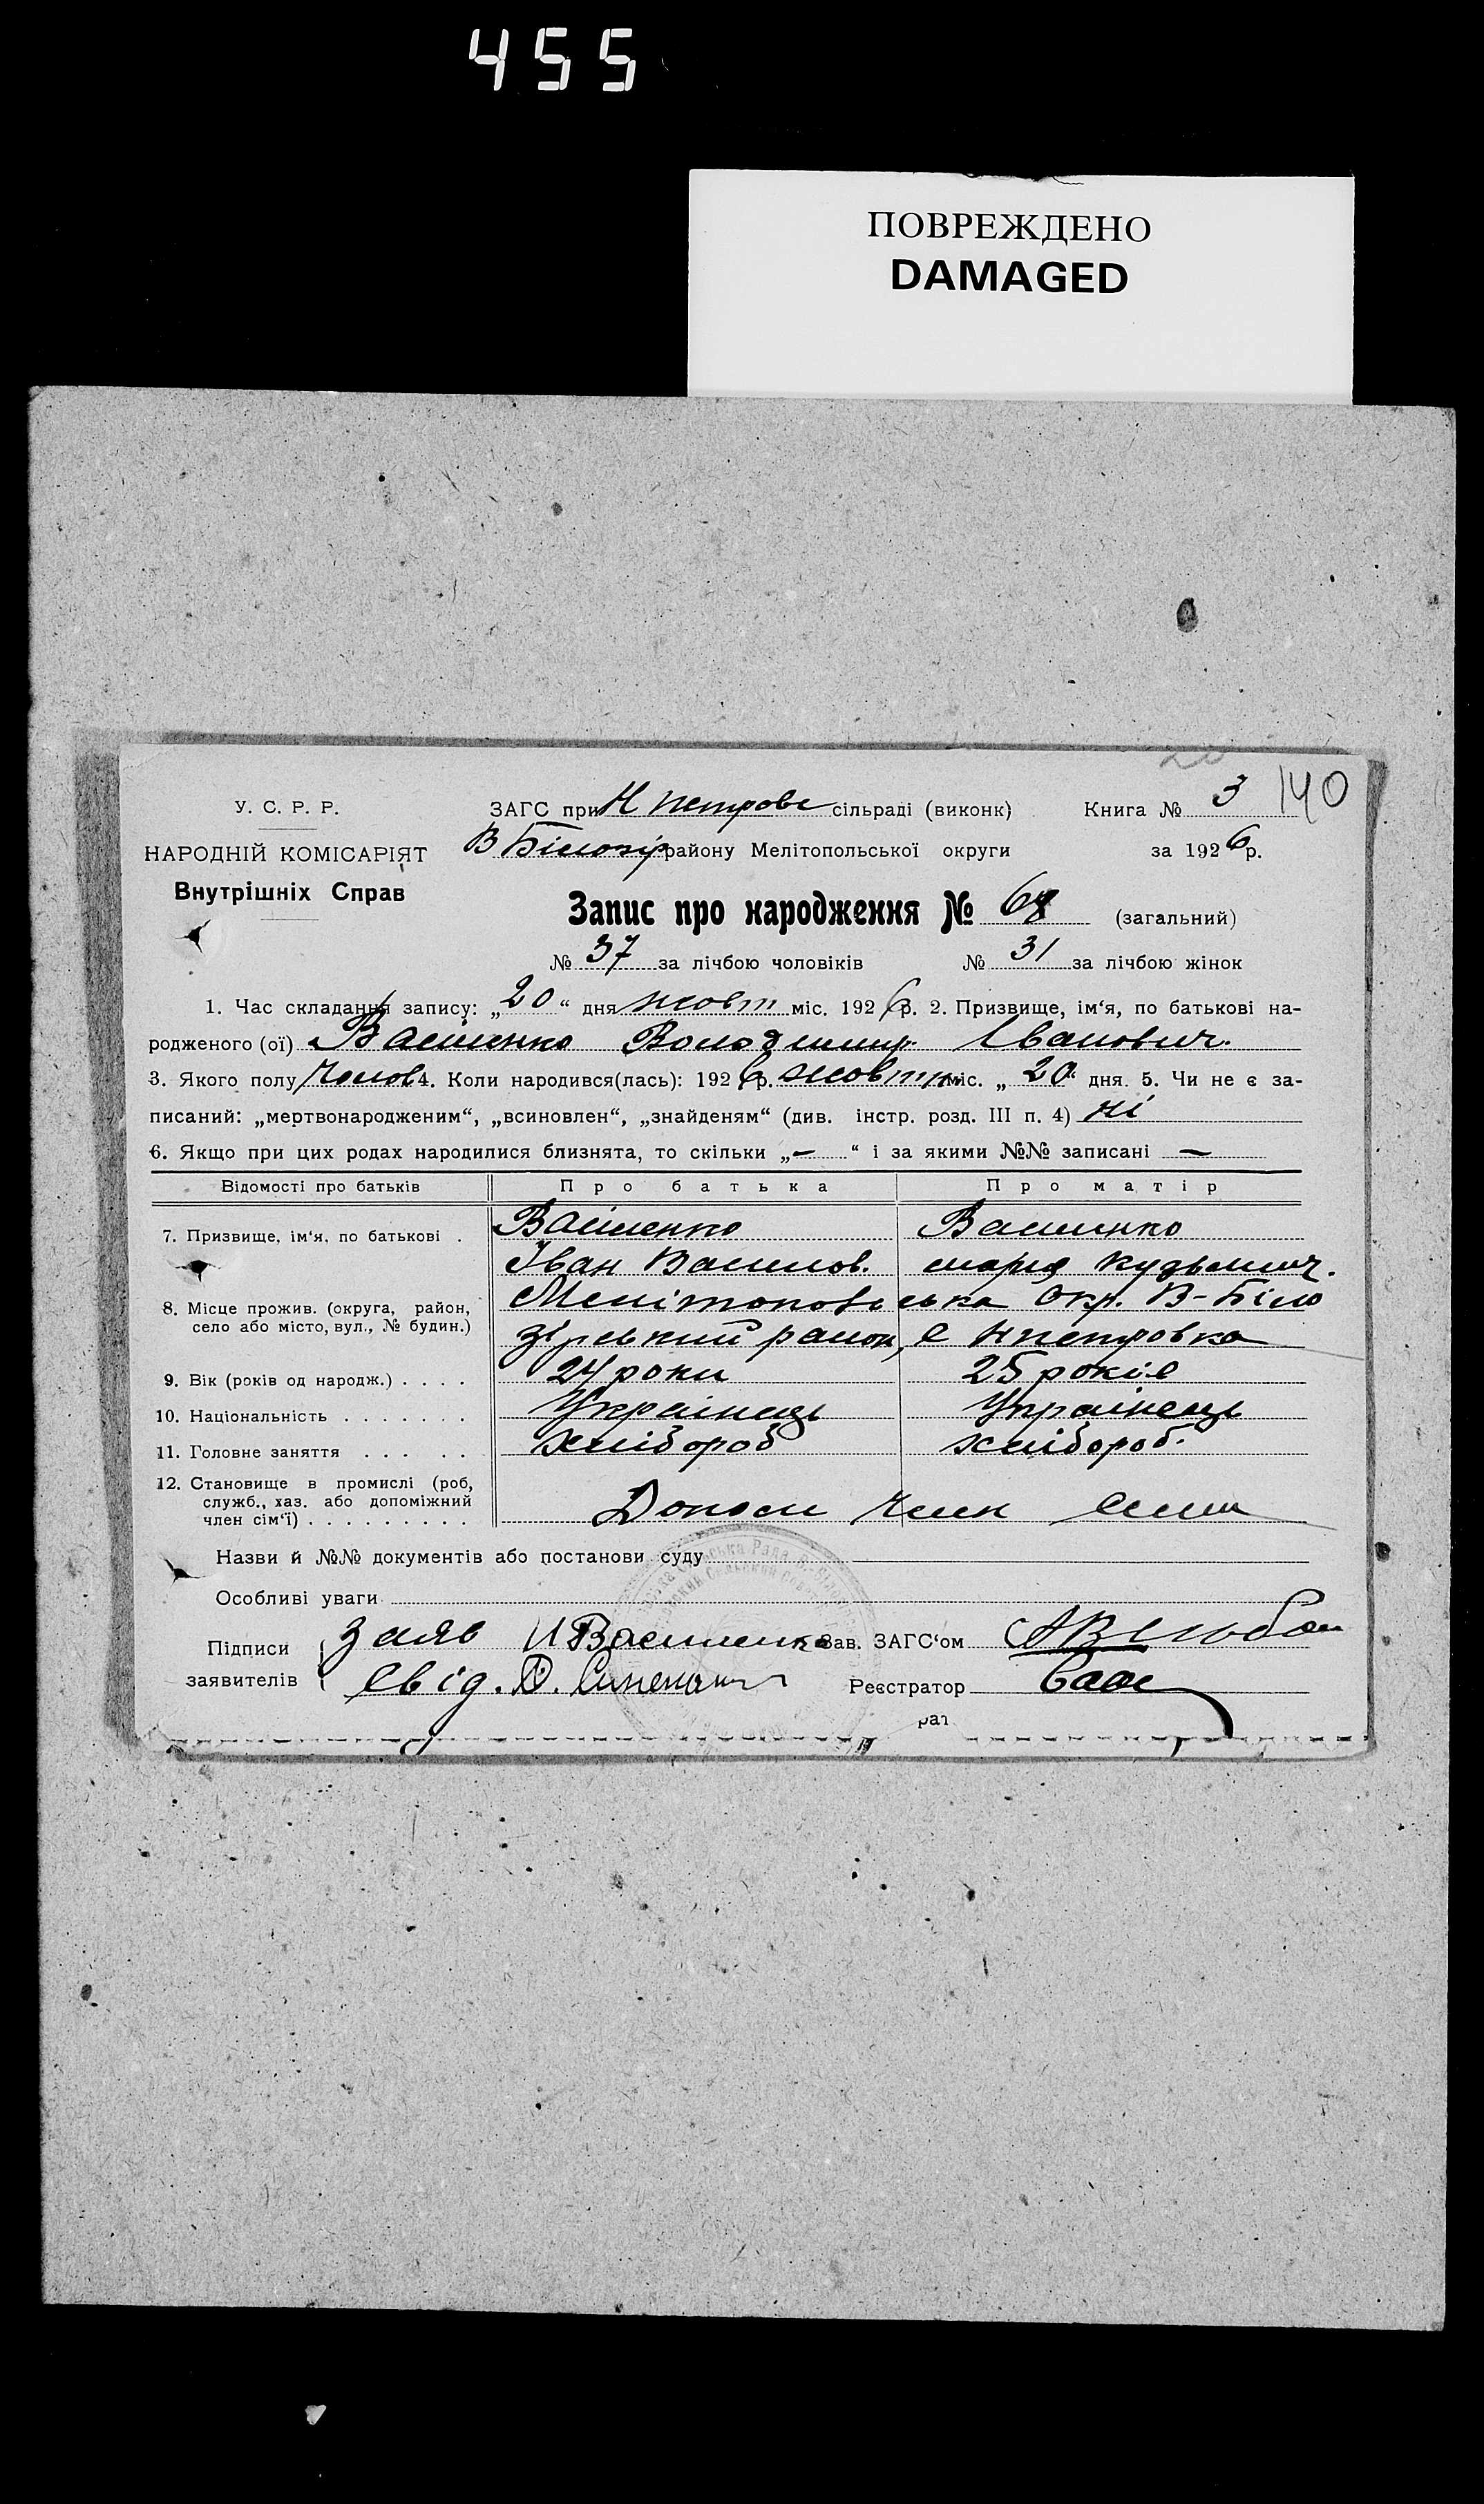 455
ПОВРЕЖДЕНО
DAMAGED
У. С. Р. Р.
НАРОДНІЙ КОМІСАРІЯТ
Внутрішніх Справ
ЗАГС при Н петрове сільраді (виконк) Книга № 3 140
В Білозір району Мелітопольської округи за 1926 р.
Запис про народження № 68 (загальний)
№ 37 за лічбою чоловіків № 31 за лічбою жінок
1. Час складання запису: „20“ дня жовт міс. 1926 р. 2. Призвище, ім‘я, по батькові на-
родженого (ої) Ващенко Володимир Іванович.
3. Якого полу Чолов 4. Коли народився(лась): 1926 р. жовтня міс. „20“ дня. 5. Чи не є за-
писаний: „мертвонародженим“, „всиновлен“, „знайденям“ (див. інстр. розд. III п. 4) ні
6. Якщо при цих родах народилися близнята, то скільки „—“ і за якими №№ записані —
Відомості про батьків Про батька Про матір
7. Призвище, ім‘я, по батькові . Ващенко Ващинко
Іван Василов. мария Кузьмич.
8. Місце прожив. (округа, район, Мелітопольська Окр. В-Біло
село або місто, вул., № будин.) зірський район, с Нпетровка
9. Вік (років од народж.) . . . . 24 роки 25 років
10. Національність . . . . . . . Українець Українець
11. Головне заняття . . . . . хлібороб хлібороб.
12. Становище в промислі (роб,
служб., хаз. або допоміжний
член сім‘ї) . . . . . . . . . Допом член
Назви й №№ документів або постанови суду
Особливі уваги
Підписи заяв И Ващенко Зав. ЗАГС‘ом
заявителів свід. Реєстратор